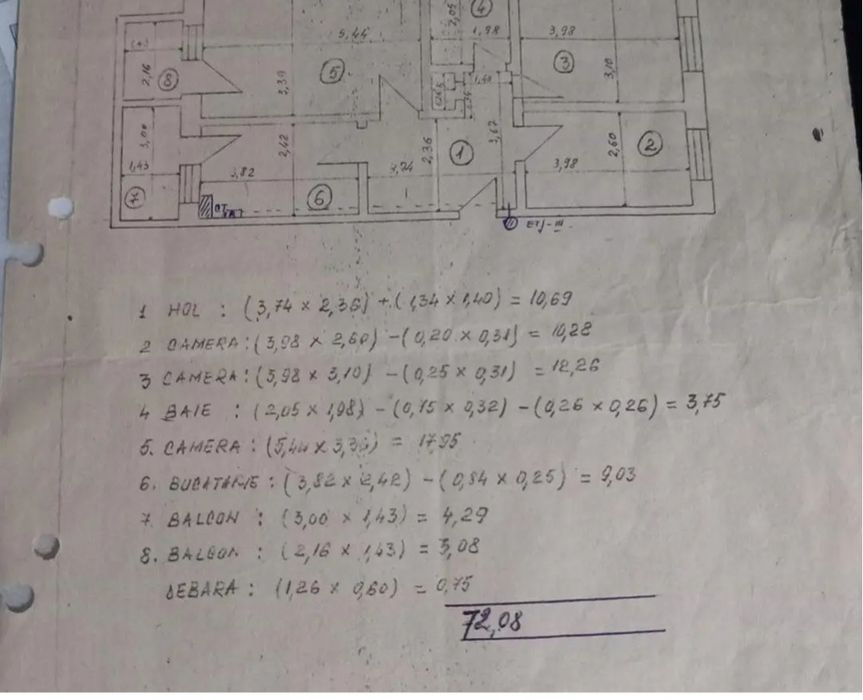 2,05
4
1,98
5,44
3,98
1,43
2,16
8
5
3,39
3
3,10
1,40
3,00
1,43
7
2,42
3,82
6
2,36
3,74
1
3,67
3,98
2,60
2
ET J-III
1 HOL : (3,74 x 2,36) + (1,34 x 1,40) = 10,69
2 CAMERA : (3,98 x 2,60) - (0,20 x 0,31) = 10,28
3 CAMERA : (3,98 x 3,10) - (0,25 x 0,31) = 12,26
4 BAIE : (2,05 x 1,98) - (0,75 x 0,32) - (0,26 x 0,26) = 3,75
5. CAMERA : (5,44 x 3,39) = 17,95
6. BUCATARIE : (3,82 x 2,42) - (0,84 x 0,25) = 9,03
7. BALCON : (3,00 x 1,43) = 4,29
8. BALCON : (2,16 x 1,43) = 3,08
DEBARA : (1,26 x 0,60) = 0,75
72,08